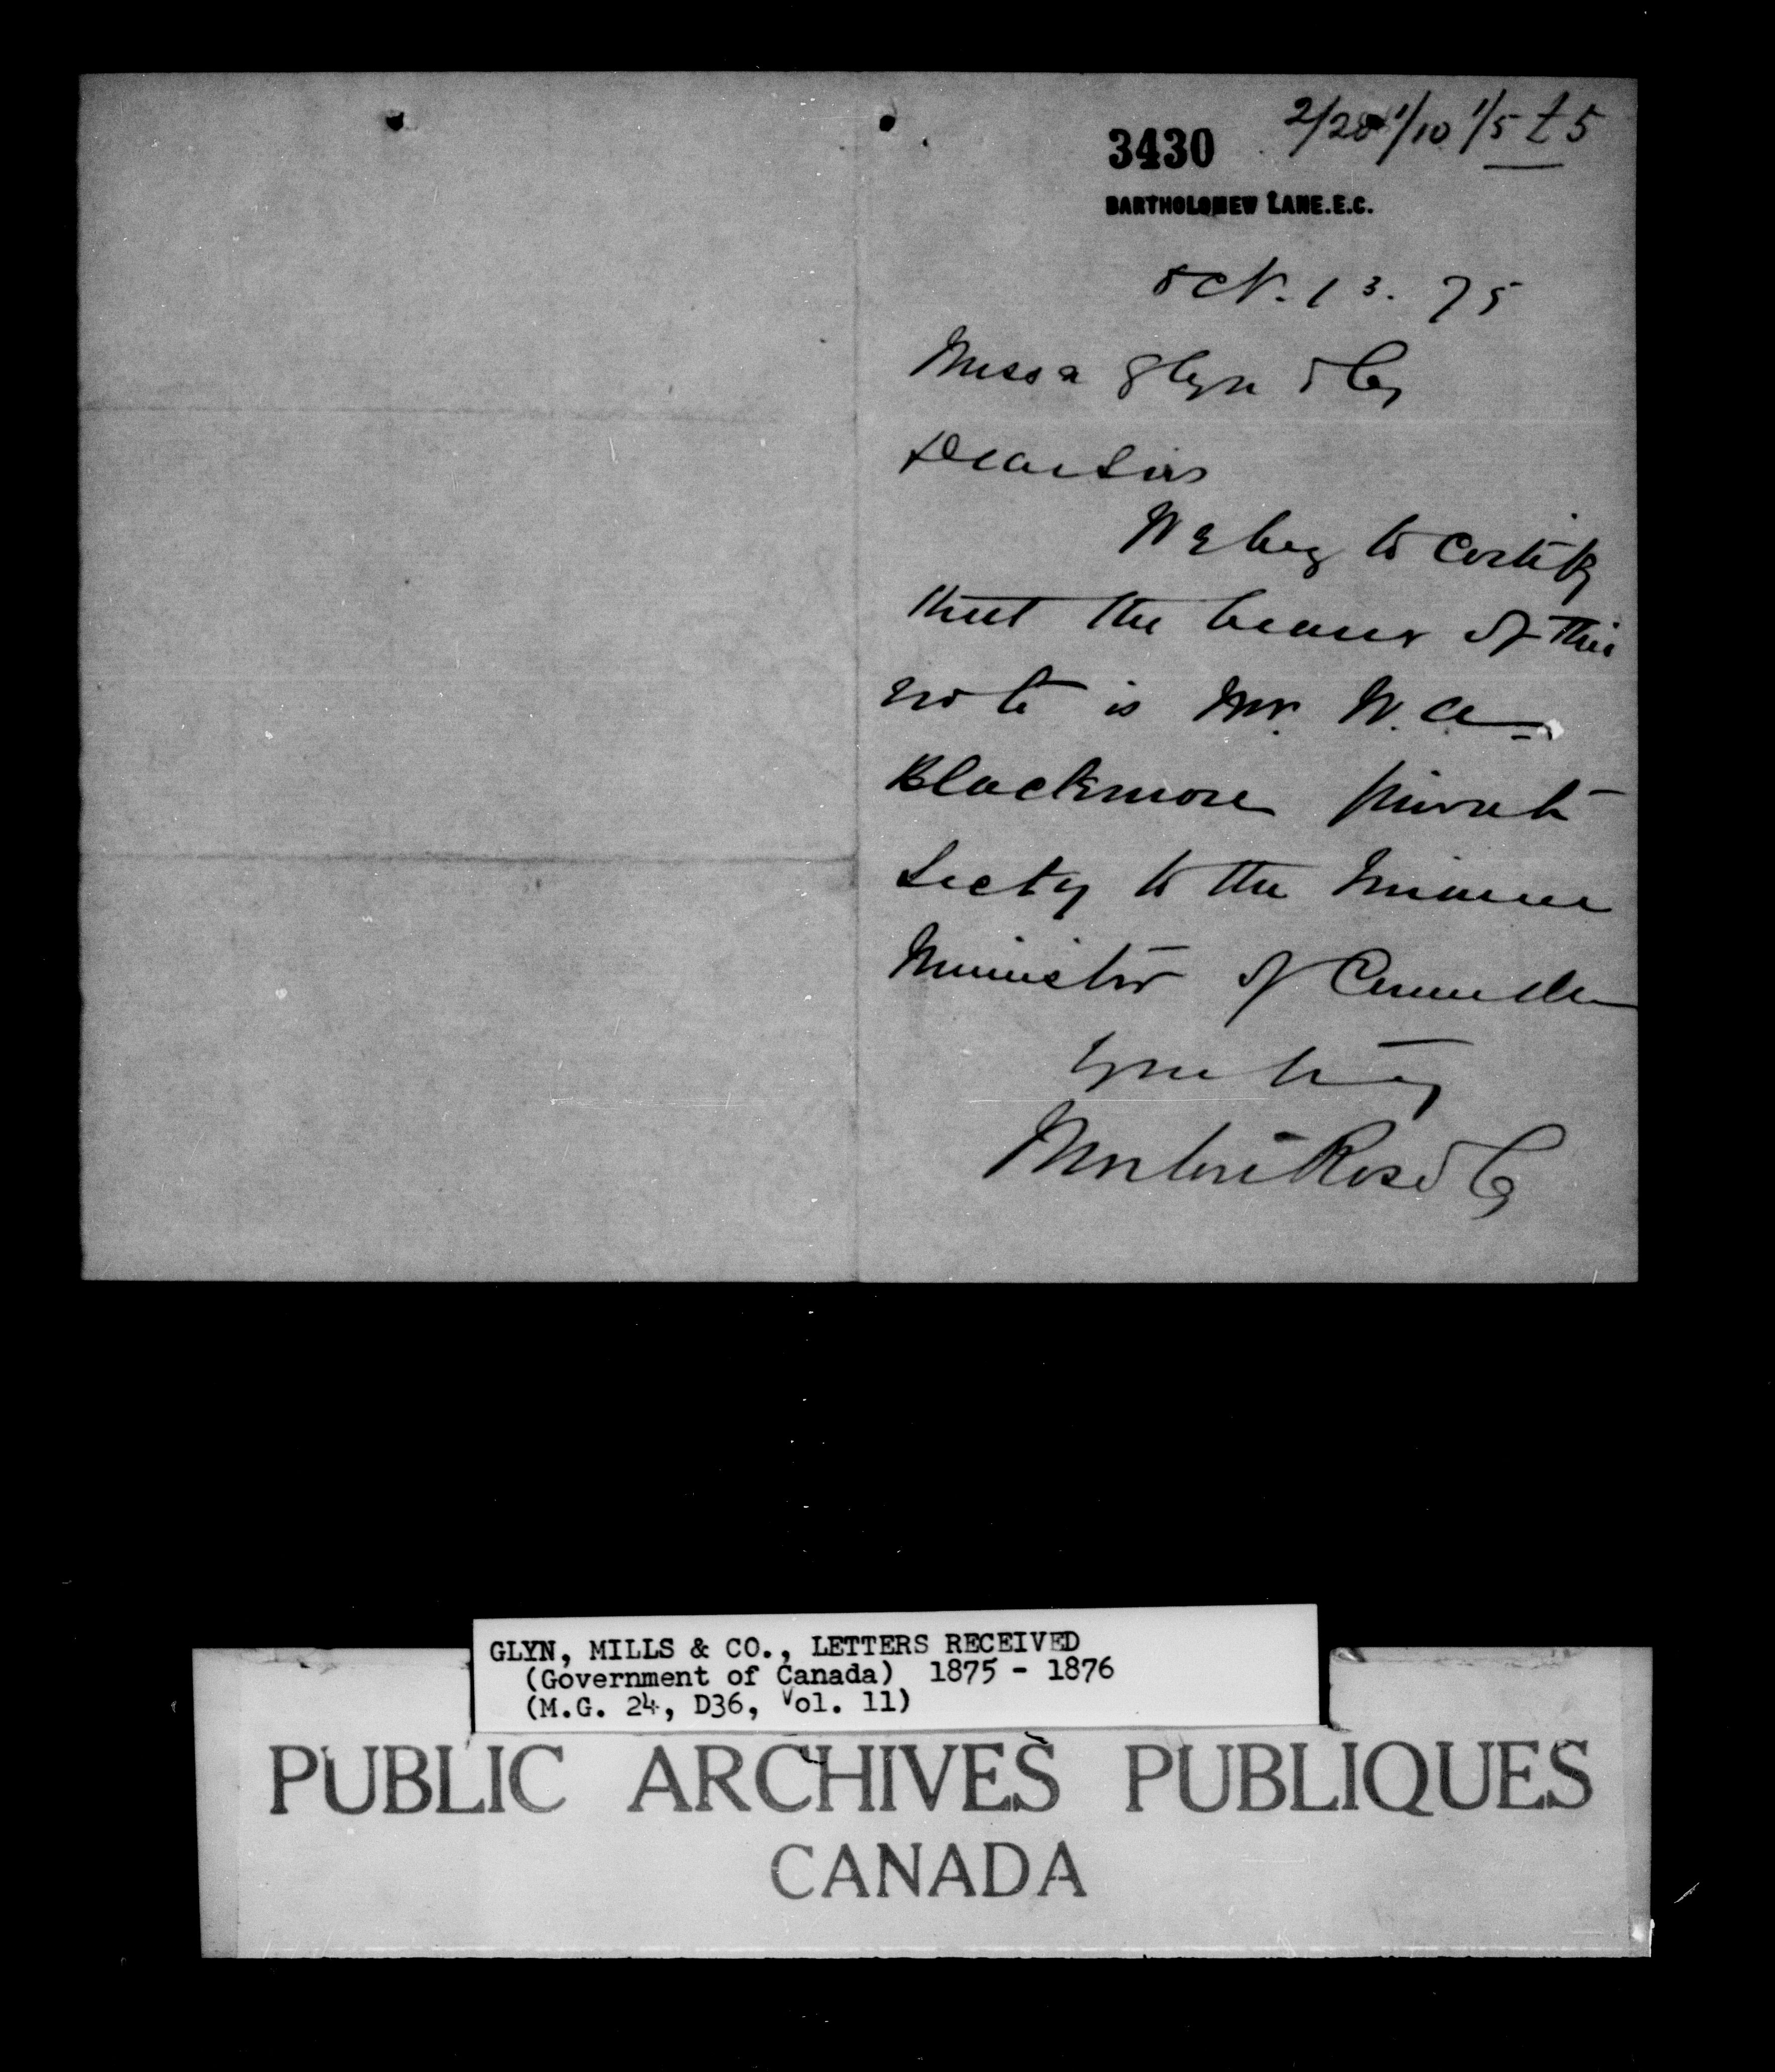 3430
2/20 1/10 1/5 £5
BARTHOLOMEW LANE. E.C.
Oct. 13. 75
Messrs Glyn & Co
Dear Sirs
We beg to certify
that the bearer of this
note is Mr. W. A.
Blackmore private
Secty to the Finance
Minister of Canada
Yrs truly
Morton Rose & Co
GLYN, MILLS & CO., LETTERS RECEIVED
(Government of Canada) 1875 - 1876
(M.G. 24, D36, Vol. 11)
PUBLIC ARCHIVES PUBLIQUES
CANADA